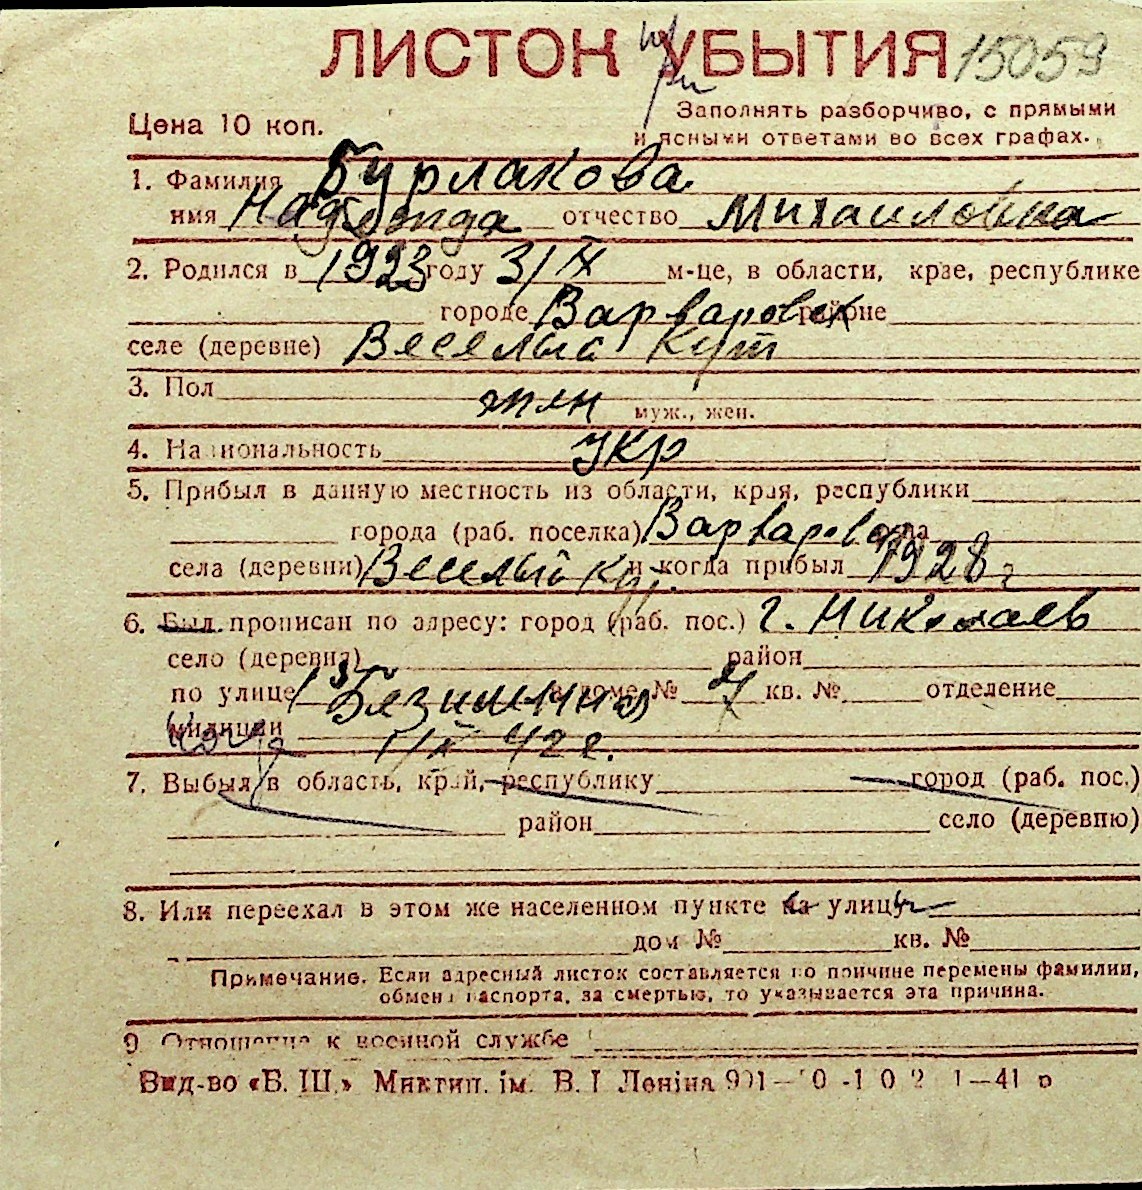 ЛИСТОК УБЫТИЯ 15059
Цена 10 коп.
Заполнять разборчиво, с прямыми
и ясными ответами во всех графах.
1. Фамилия Бурлакова
имя Надежда отчество Михаиловна
2. Родился в 1923 году 3/IX м-це, в области, крае, республике
городе Варваровск районе
селе (деревне) Веселый Кут
3. Пол жен муж., жен.
4. Национальность укр
5. Прибыл в данную местность из области, края, республики
города (раб. поселка) Варваровс
села (деревни) Веселый Кут и когда прибыл 1928 г
6. Был прописан по адресу: город (раб. пос.) г. Николаев
село (деревня) район
по улице 13 Безимянная в доме № кв. № отделение
милиции
42 г.
7. Выбыл в область, край, республику город (раб. пос.)
район село (деревню)
8. Или переехал в этом же населенном пункте на улицу
дом № кв. №
Примечание. Если адресный листок составляется по причине перемены фамилии,
обмена паспорта, за смертью, то указывается эта причина.
9. Отношение к военной службе
Вид-во «Б. Ш.» Миктип. ім. В. І Леніна